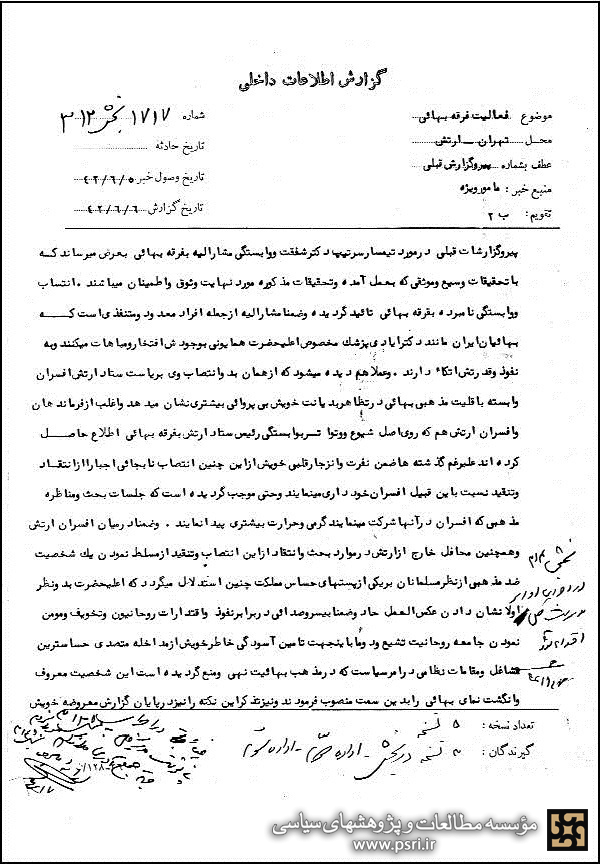 گزارش اطلاعات داخلی
موضوع فعالیت فرقه بهائی
محل تهران ــ ارتش
عطف بشماره پیروگزارش قبلی
منبع خبر : مامورویژه
تقویم : ب ۲
شماره ۱۷۱۷ بخش ۳۱۲
تاریخ حادثه
تاریخ وصول خبر ۴۲/۶/۵
تاریخ گزارش ۴۲/۶/۶
پیروگزارشات قبلی درمورد تیمسارسرتیپ دکترشفقت ووابستگی مشارالیه بفرقه بهائی بعرض میرساند که
باتحقیقات وسیع وموثقی که بعمل آمده وتحقیقات مذکوره مورد نهایت وثوق واطمینان میباشند . انتساب
ووابستگی نامبرده بفرقه بهائی تائید گردیده وضمنا مشارالیه ازجمله افراد معدود ومتنفذی است که
بهائیان ایران مانند دکترایادی پزشک مخصوص اعلیحضرت همایونی بوجودش افتخارومباهات میکنند وبه
نفوذ وقدرتش اتکاء دارند . وعملا هم دیده میشود که ازهمان بدو انتصاب وی بریاست ستاد ارتش افسران
وابسته باقلیت مذهبی بهائی درتظاهربدیانت خویش بی پروائی بیشتری نشان میدهد واغلب ازفرماندهان
وافسران ارتش هم که روی اصل شیوع ووتواتر وابستگی رئیس ستاد ارتش بفرقه بهائی اطلاع حاصل
کرده اند علیرغم گذشته هاضمن نفرت وانزجارقلبی خویش ازاین چنین انتصاب نابجائی اجبارا ازانتقاد
وتنقید نسبت باین قبیل افسران خود داری مینمایند وحتی موجب گردیده است که جلسات بحث ومناظره
مذهبی که افسران درآنها شرکت مینمایند گرمی وحرارت بیشتری پیدا نمایند . وضمنا درمیان افسران ارتش
وهمچنین محافل خارج ازارتش درموارد بحث وانتقاد ازاین انتصاب وتنقید ازمسلط نمودن یک شخصیت
ضد مذهبی ازنظرمسلمانان بریکی ازپستهای حساس مملکت چنین استدلال میگردد که اعلیحضرت بدو نظر
اولا نشان دادن عکس العمل حاد وضمنا بیسروصدائی دربرابرنفوذ واقتدارات روحانیون وتخویف ومومن
نمودن جامعه روحانیت تشیع ودوما باینجهت تامین آسودگی خاطرخویش ازمداخله متصدی حساسترین
مشاغل ومقامات نظامی درامرسیاست که درمذهب بهائیت نهی ومنع گردیده است این شخصیت معروف
وانگشت نمای بهائی رابدین سمت منصوب فرمودند ونیزتذکراین نکته رانیزدرپایان گزارش معروضه خویش
تعداد نسخه : ۵ نسخه
گیرندگان :
مؤسسه مطالعات و پژوهشهای سیاسی
www.psri.ir